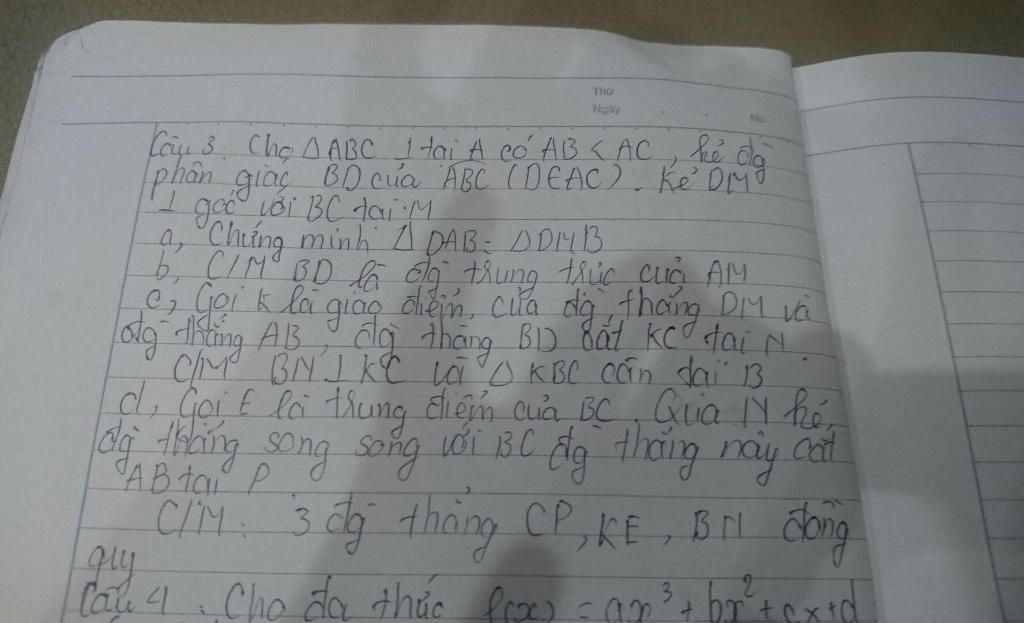 Thứ
Ngày
No.
Câu 3. Cho △ABC ⊥ tại A có AB < AC, kẻ đg
phân giác BD của ABC (D∈AC). Kẻ DM
⊥ góc với BC tại M
a, Chứng minh △DAB = △DMB
b, C/M BD là đg trung trực của AM
c, Gọi K là giao điểm của đg thẳng DM và
đg thẳng AB, đg thẳng BD cắt KC tại N.
C/M BN ⊥ KC và △KBC cân tại B
d, Gọi E là trung điểm của BC. Qua N kẻ
đg thẳng song song với BC đg thẳng này cắt
AB tại P
C/M: 3 đg thẳng CP, KE, BN đồng
quy
Câu 4. Cho đa thức f(x) = ax³ + bx² + cx + d